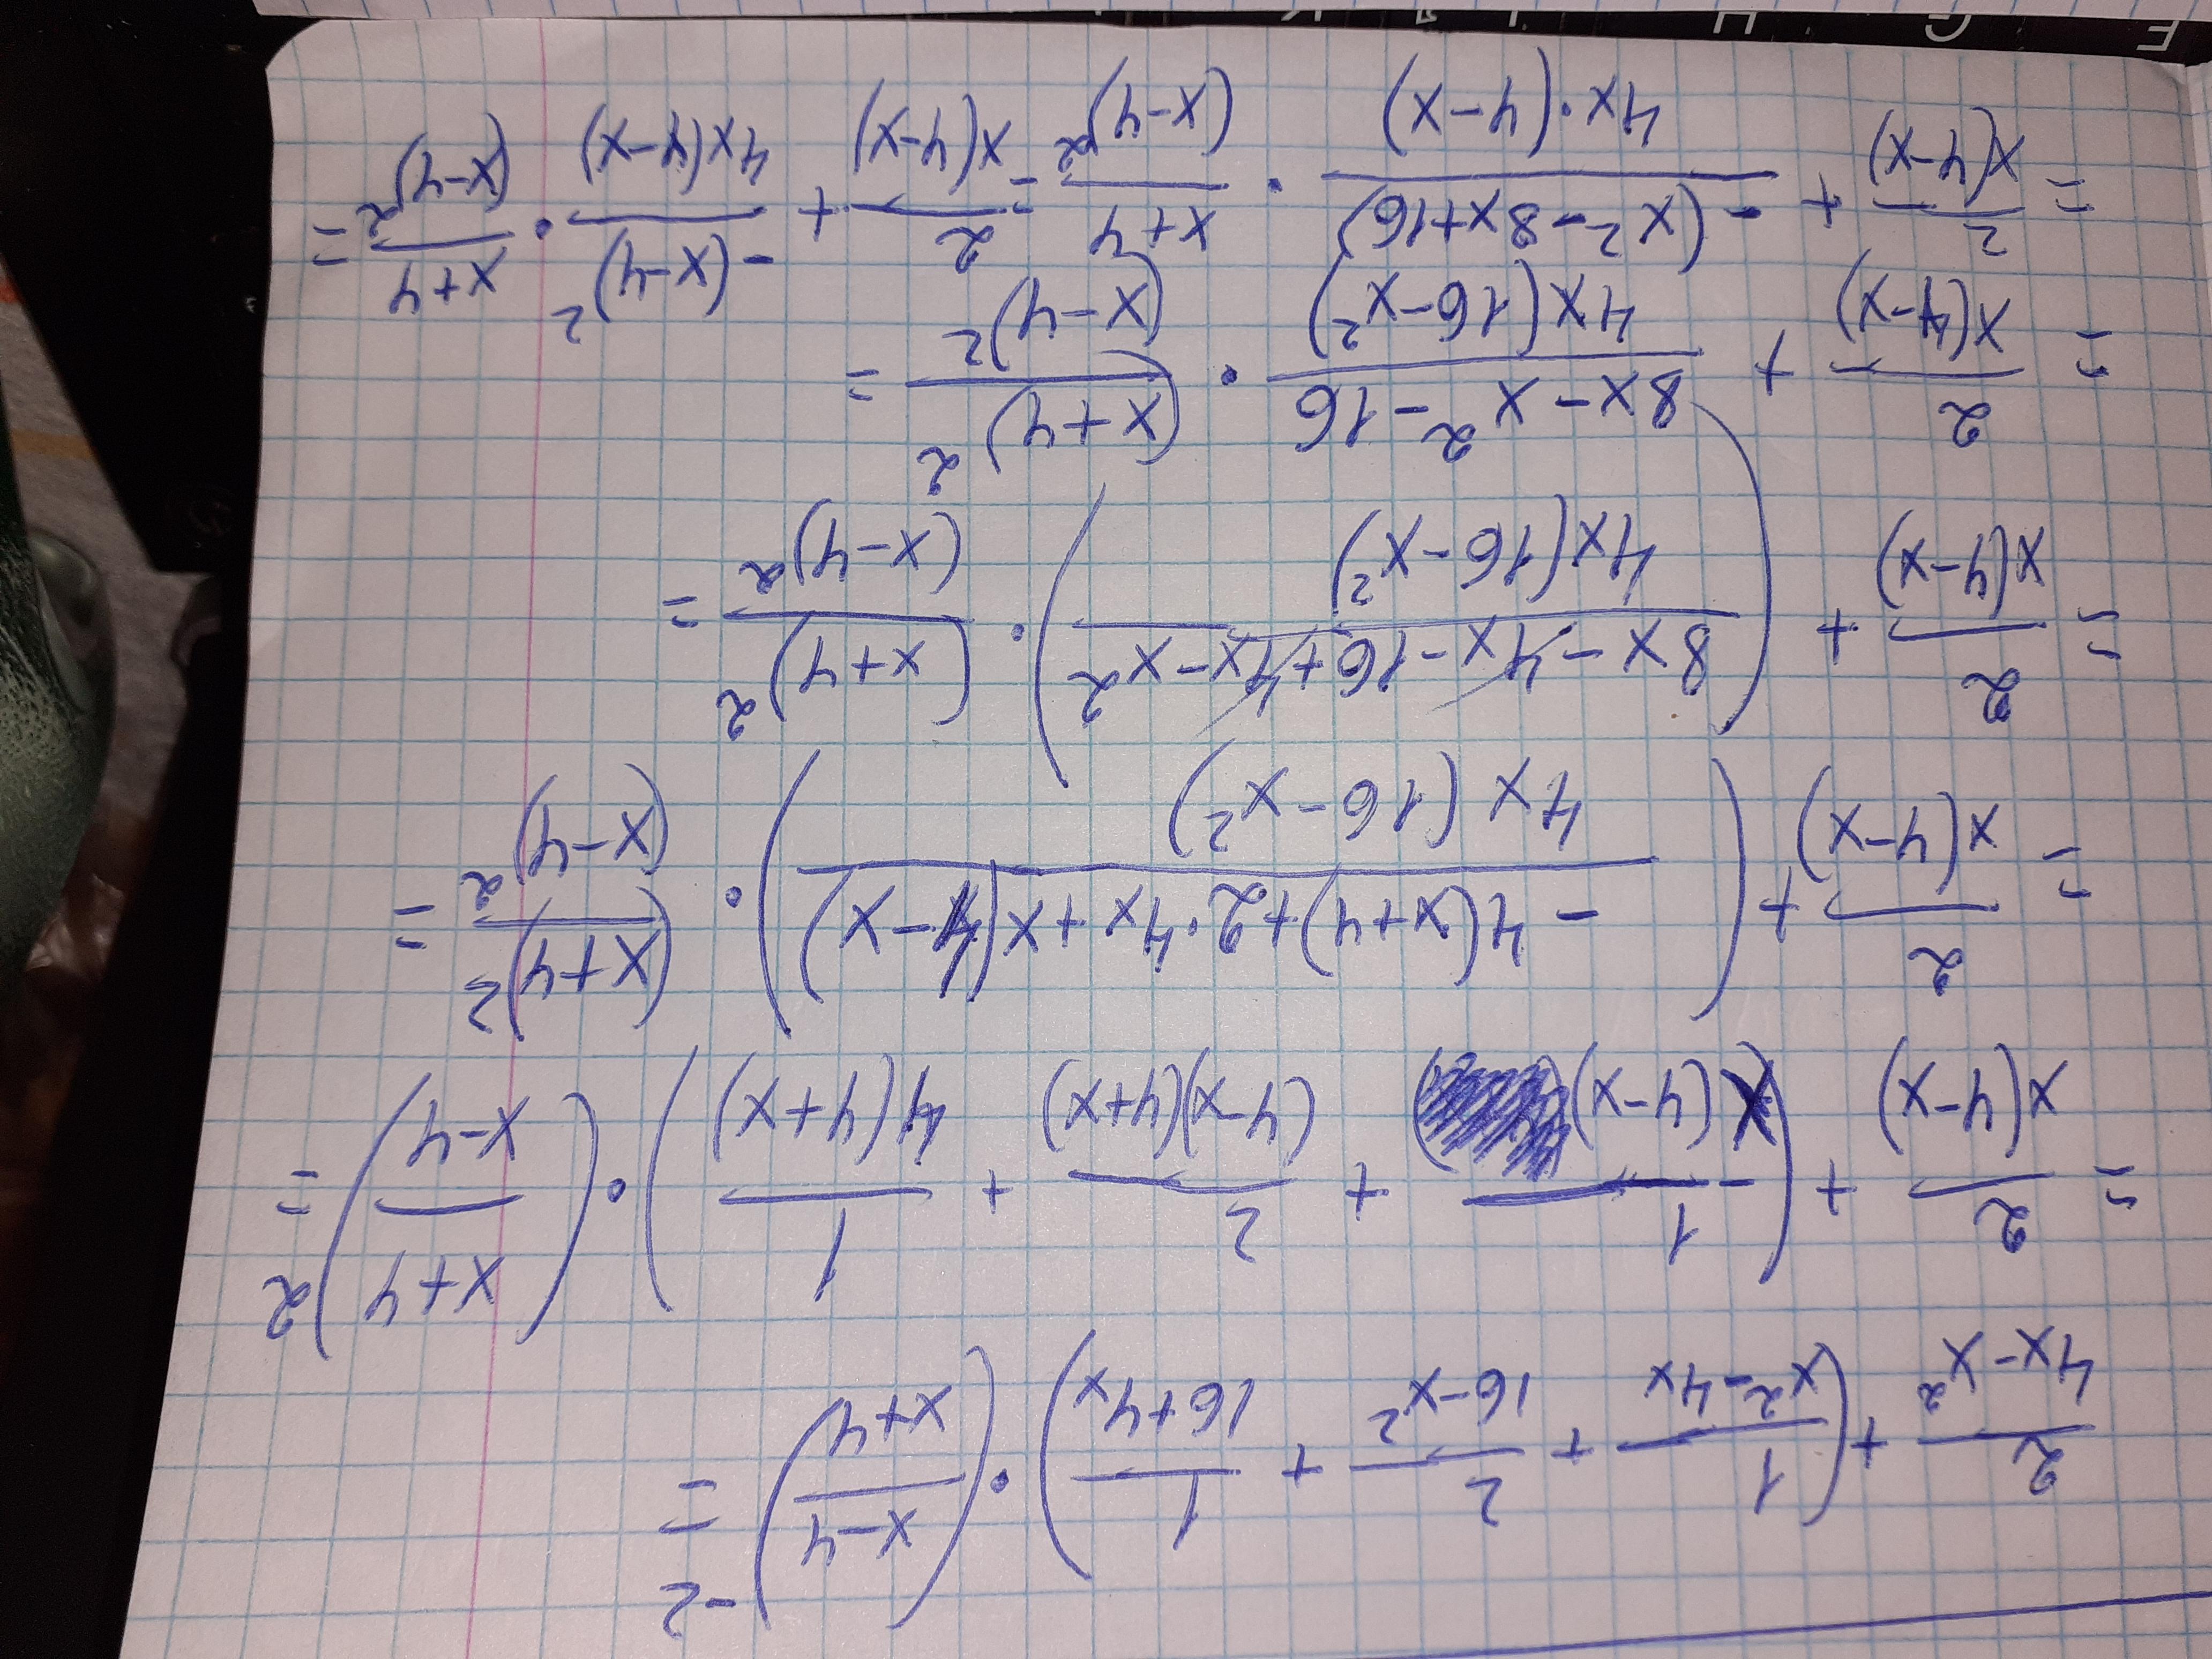 2/(4x-x²) + (1/(x²-4x) + 2/(16-x²) + 1/(16+4x)) · ((x-4)/(x+4))^-2 =
= 2/(x(4-x)) + (-1/(x(4-x)) + 2/((4-x)(4+x)) + 1/(4(4+x))) · ((x+4)/(x-4))² =
= 2/(x(4-x)) + ((-4(x+4)+2·4x+x(4-x))/(4x(16-x²))) · (x+4)²/(x-4)² =
= 2/(x(4-x)) + ((8x-4x-16+4x-x²)/(4x(16-x²))) · (x+4)²/(x-4)² =
= 2/(x(4-x)) + (8x-x²-16)/(4x(16-x²)) · (x+4)²/(x-4)² =
= 2/(x(4-x)) + -(x²-8x+16)/(4x·(4-x)) · (x+4)/(x-4)² = 2/(x(4-x)) + -(x-4)²/(4x(4-x)) · (x+4)/(x-4)² =